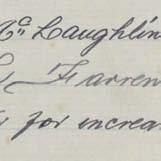 Mc Laughlin
Farren
for increa